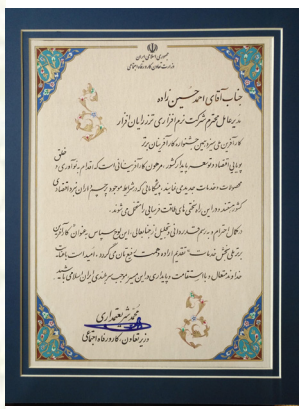 جمهوری اسلامی ایران
وزارت تعاون، کار و رفاه اجتماعی
جناب آقای احمد حسین زاده
مدیرعامل محترم شرکت نرم افزاری تزر رایان افزار
کارآفرین ملی سیزدهمین جشنواره کارآفرینان برتر
خلق
پویایی اقتصاد و توسعه پایدار کشور، مرهون کارآفرینانی است که اقدام به نوآوری و
محصولات و خدمات جدیدی نمایند، پیشگامانی که در شرایط موجود پرچمدار اقتصادی
کشور هستند و در این راه سختی های طاقت فرسایی را متحمل می شوند.
در کمال احترام، به رسم قدردانی و تجلیل از جنابعالی، این لوح سپاس به عنوان "کارآفرین
برتر ملی بخش خدمات" تقدیم اراده و همت رفیع تان می گردد، امید است با عنایت
خداوند متعال و با استقامت و پایداری در این مسیر موجب سربلندی ایران اسلامی باشید.
محمد شریعتمداری
وزیر تعاون، کار و رفاه اجتماعی